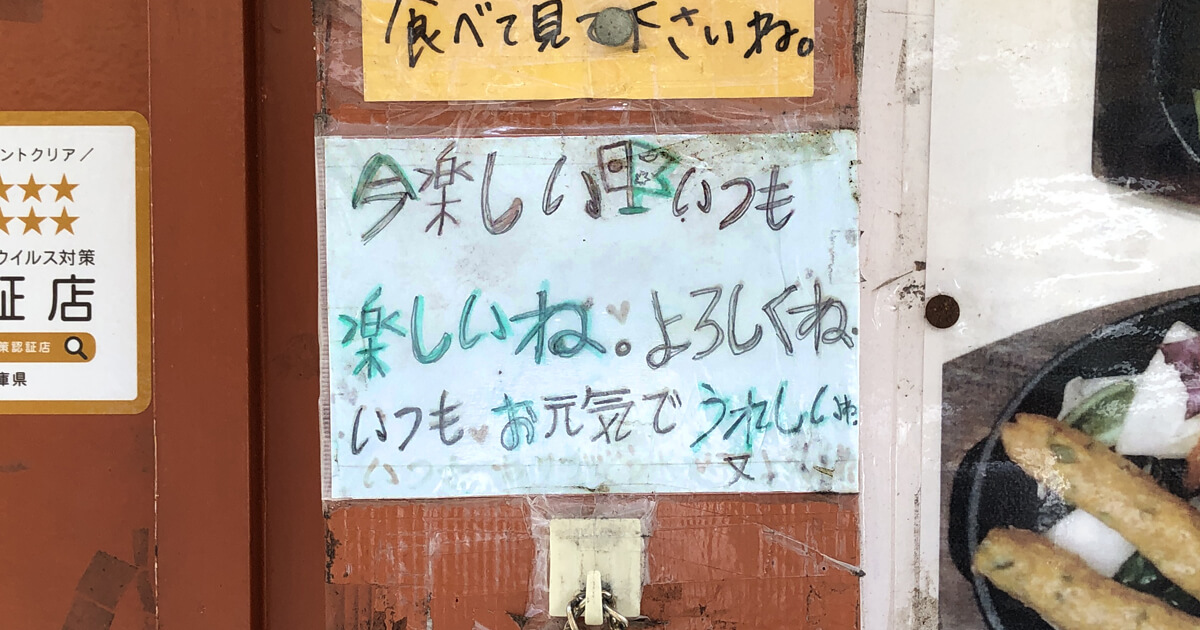 食べて見て下さいね。
ントクリア／
ウイルス対策
証店
策認証店
庫県
今楽しい いつも
楽しいね。よろしくね
いつも お元気で うれしいね
又